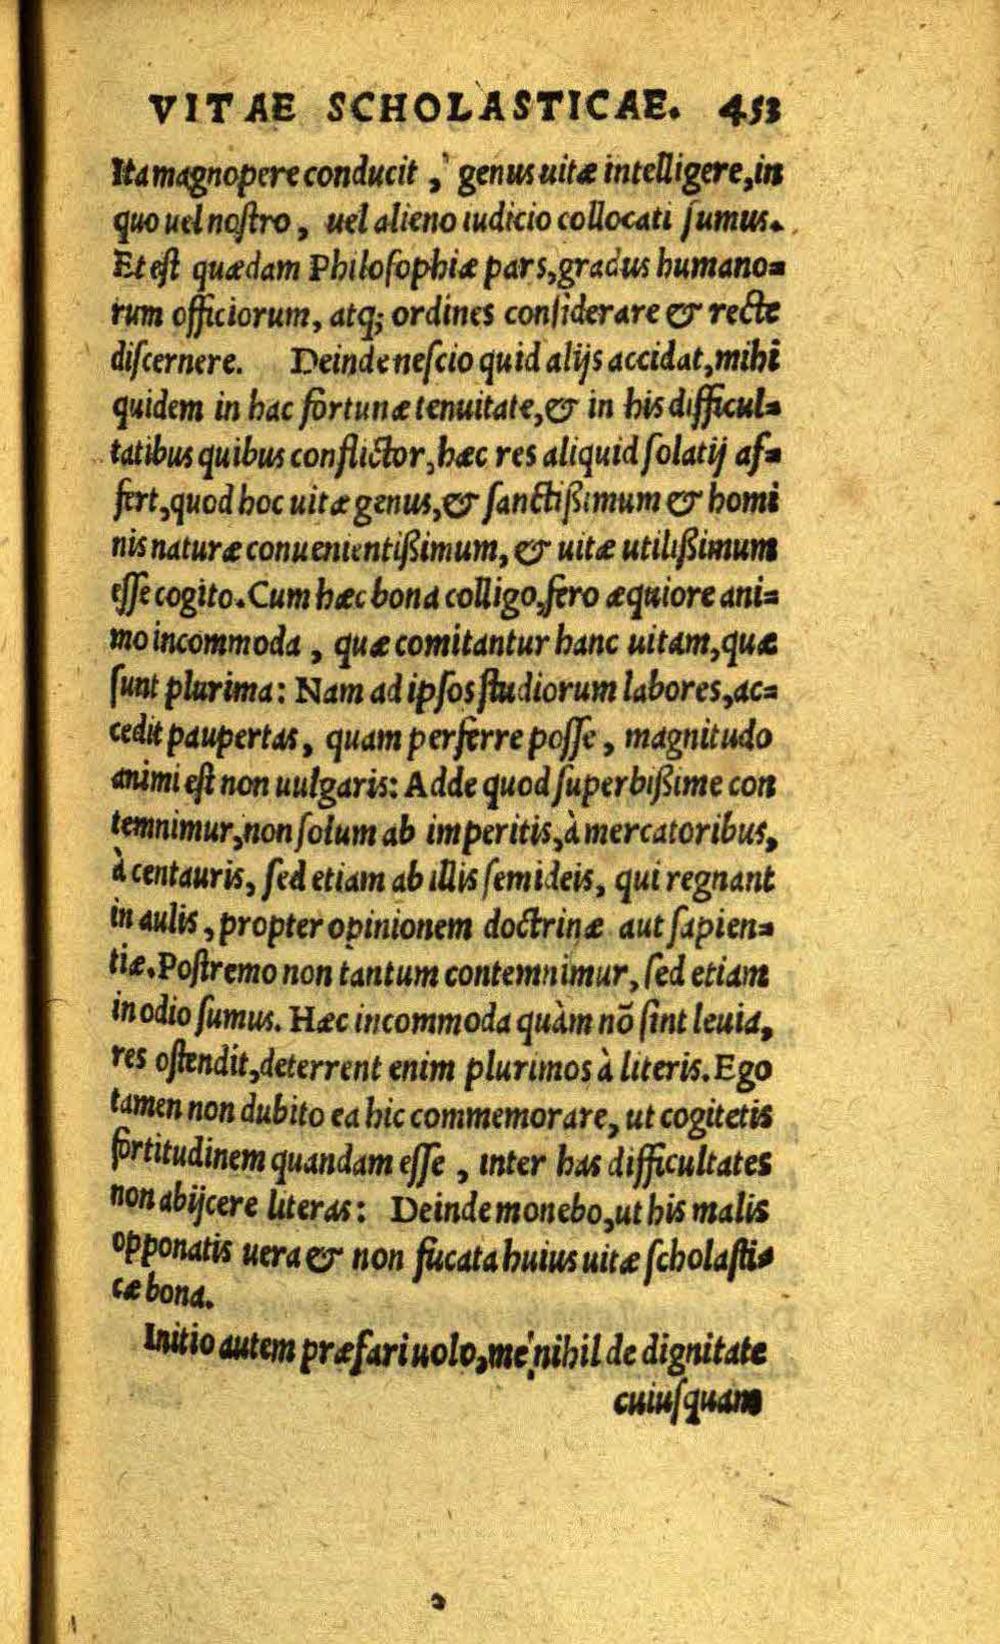 VITAE SCHOLASTICAE. 453
Ita magnopere conducit, genus uitæ intelligere, in
quo uel nostro, uel alieno iudicio collocati sumus.
Et est quædam Philosophiæ pars, gradus humano=
rum officiorum, atq; ordines considerare & recte
discernere. Deinde nescio quid alijs accidat, mihi
quidem in hac fortunæ tenuitate, & in his difficul=
tatibus quibus conflictor, hæc res aliquid solatij af=
fert, quod hoc uitæ genus, & sanctißimum & homi
nis naturæ conuenientißimum, & uitæ utilißimum
esse cogito. Cum hæc bona colligo, fero æquiore ani=
mo incommoda, quæ comitantur hanc uitam, quæ
sunt plurima: Nam ad ipsos studiorum labores, ac=
cedit paupertas, quam perferre posse, magnitudo
animi est non uulgaris: Adde quod superbißime con
temnimur, non solum ab imperitis, à mercatoribus,
à centauris, sed etiam ab illis semideis, qui regnant
in aulis, propter opinionem doctrinæ aut sapien=
tiæ. Postremo non tantum contemnimur, sed etiam
in odio sumus. Hæc incommoda quàm nõ sint leuia,
res ostendit, deterrent enim plurimos à literis. Ego
tamen non dubito ea hic commemorare, ut cogitetis
fortitudinem quandam esse, inter has difficultates
non abijcere literas: Deinde monebo, ut his malis
opponatis uera & non fucata huius uitæ scholasti=
cæ bona.
Initio autem præfari uolo, me nihil de dignitate
cuiusquam